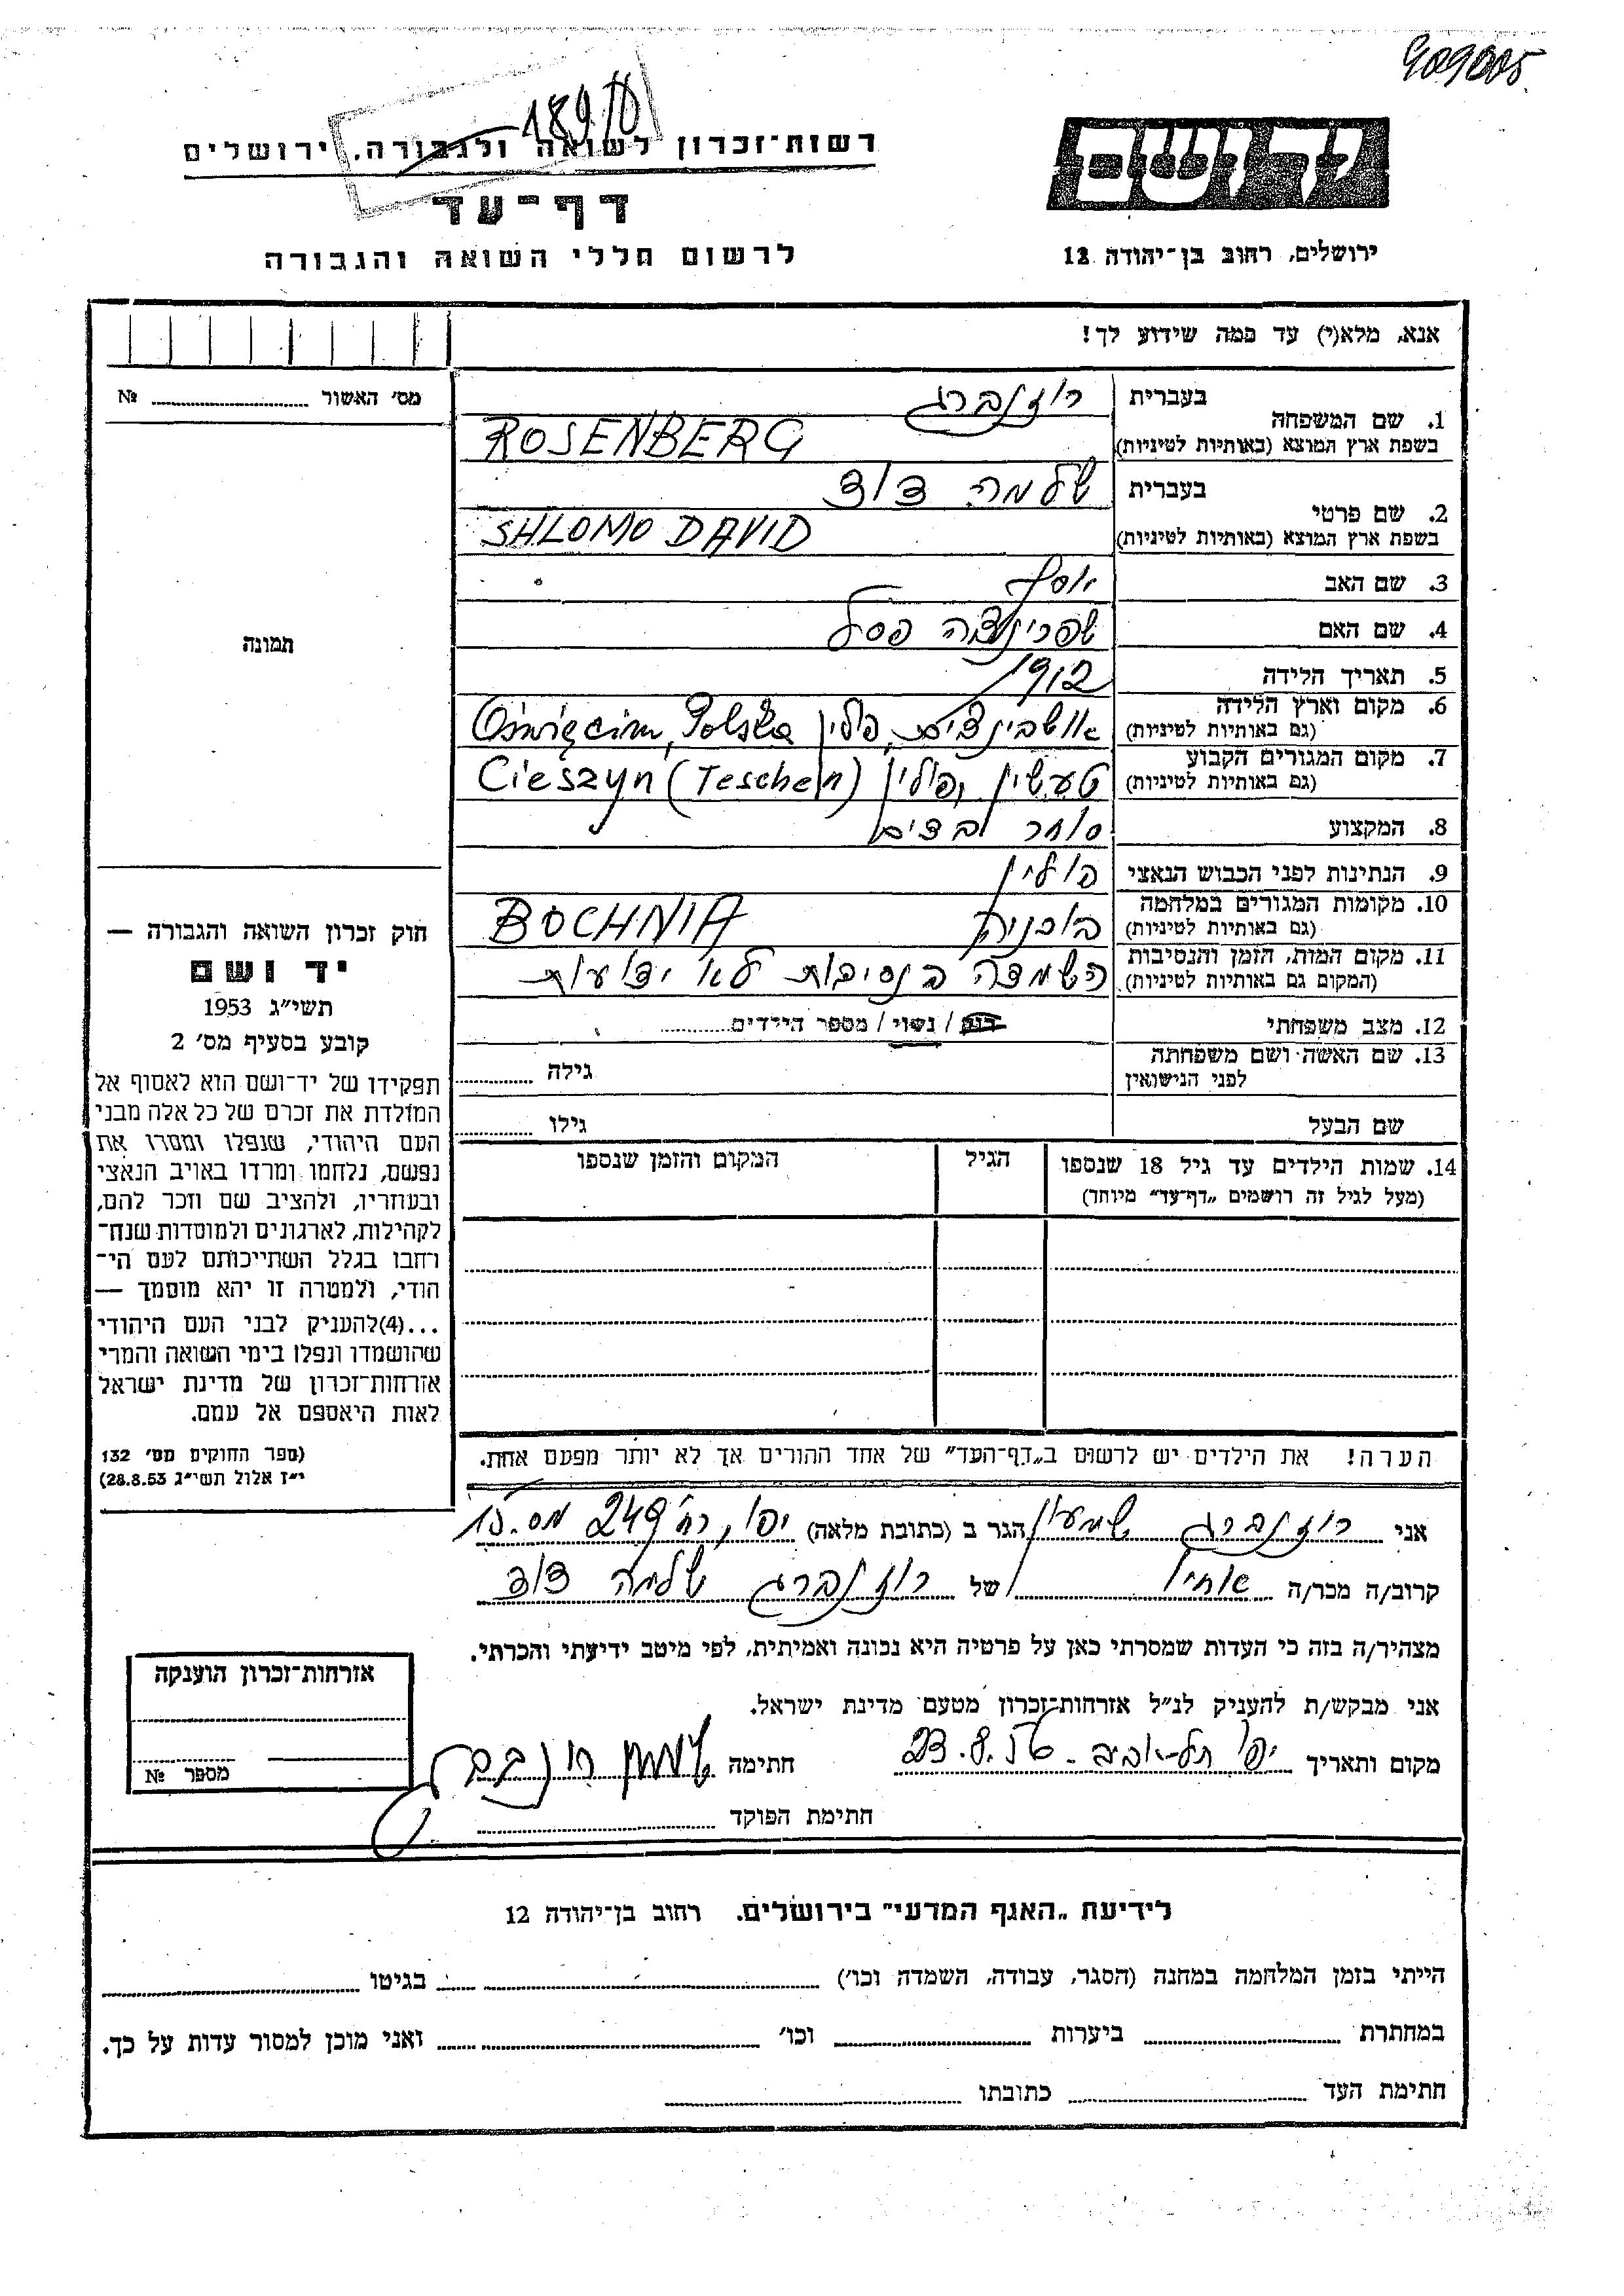 909005
189
רשות־זכרון לשואה ולגבורה, ירושלים
דף־עד
לרשום חללי השואה והגבורה
יד ושם
ירושלים, רחוב בן־יהודה 12
אנא, מלא(י) עד כמה שידוע לך!
מס׳ האשור № 
1. שם המשפחה
בעברית רוזנברג
בשפת ארץ המוצא (באותיות לטיניות) ROSENBERG
2. שם פרטי
בעברית שלמה דוד
בשפת ארץ המוצא (באותיות לטיניות) SHLOMO DAVID
3. שם האב יוסף
4. שם האם שפרינצה פסל
5. תאריך הלידה 1912
6. מקום וארץ הלידה
(גם באותיות לטיניות) אושבינצים, פולין Oświęcim, Polska
7. מקום המגורים הקבוע
(גם באותיות לטיניות) טעשין, פולין Cieszyn (Teschen)
8. המקצוע סוחר
9. הנתינות לפני הכבוש הנאצי פולין
10. מקומות המגורים במלחמה
(גם באותיות לטיניות) בוכניה BOCHNIA
11. מקום המות, הזמן והנסיבות
(המקום גם באותיות לטיניות) השמדה בנסיבות לא ידועות
12. מצב משפחתי רווק / נשוי / מספר הילדים
13. שם האשה ושם משפחתה
לפני הנישואין גילה
שם הבעל גילו
14. שמות הילדים עד גיל 18 שנספו
(מעל לגיל זה רושמים „דף־עד״ מיוחד)
הגיל
המקום והזמן שנספו
הערה! את הילדים יש לרשום ב„דף־העד״ של אחד ההורים אך לא יותר מפעם אחת.
תמונה
חוק זכרון השואה והגבורה —
יד ושם
תשי״ג 1953
קובע בסעיף מס׳ 2
תפקידו של יד־ושם הוא לאסוף אל
המולדת את זכרם של כל אלה מבני
העם היהודי, שנפלו ומסרו את
נפשם, נלחמו ומרדו באויב הנאצי
ובעוזריו, ולהציב שם וזכר להם,
לקהילות, לארגונים ולמוסדות שנח־
רחבו בגלל השתייכותם לעם הי־
הודי, ולמטרה זו יהא מוסמך —
...(4)להעניק לבני העם היהודי
שהושמדו ונפלו בימי השואה והמרי
אזרחות־זכרון של מדינת ישראל
לאות היאספם אל עמם.
(ספר החוקים מס׳ 132
י״ז אלול תשי״ג 28.8.53)
אני רוזנברג שמעון הגר ב (כתובת מלאה) יפו, רח׳ 249 מס.
קרוב/ה מכר/ה אחיו של רוזנברג שלמה דוד
מצהיר/ה בזה כי העדות שמסרתי כאן על פרטיה היא נכונה ואמיתית, לפי מיטב ידיעתי והכרתי.
אני מבקש/ת להעניק לנ״ל אזרחות־זכרון מטעם מדינת ישראל.
מקום ותאריך יפו תל־אביב - 23.8.56 חתימה
חתימת הפוקד
אזרחות־זכרון הוענקה
מספר №
לידיעת „האגף המדעי״ בירושלים. רחוב בן־יהודה 12
הייתי בזמן המלחמה במחנה (הסגר, עבודה, השמדה וכו׳) בגיטו
במחתרת ביערות וכו׳ ואני מוכן למסור עדות על כך.
חתימת העד כתובתו